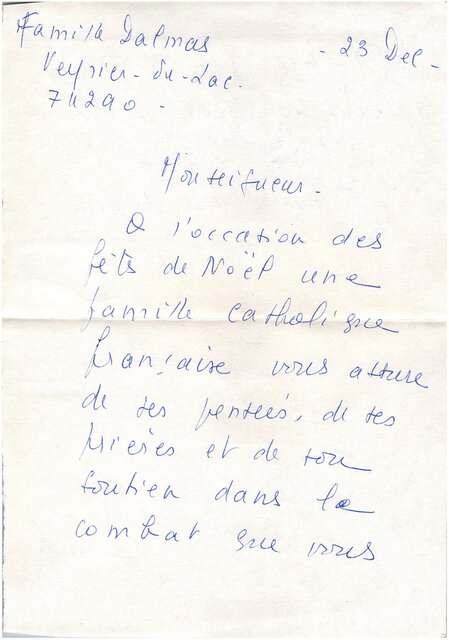 Famille Dalmas
- 23 Dec -
Veyrier-du-Lac.
74290 -
Monseigneur -
A l'occation des
fêts de Noël une
famille catholique
française vous assure
de ses pensées, de ses
prières et de son
soutien dans le
combat que vous